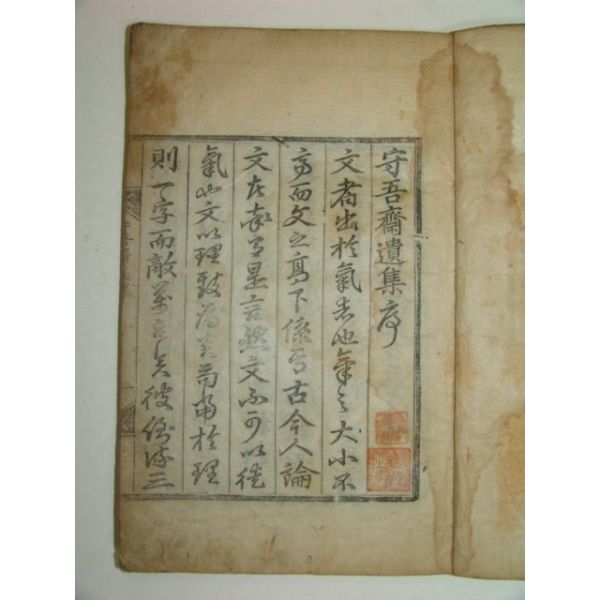 守吾齋遺集序
文者出於氣者也氣之大小不
齊而文之高下係焉古今人論
文者率多是言然文不可以徒
氣必文以理致為美苟當於理
則一字而敵萬言矣彼侈許三